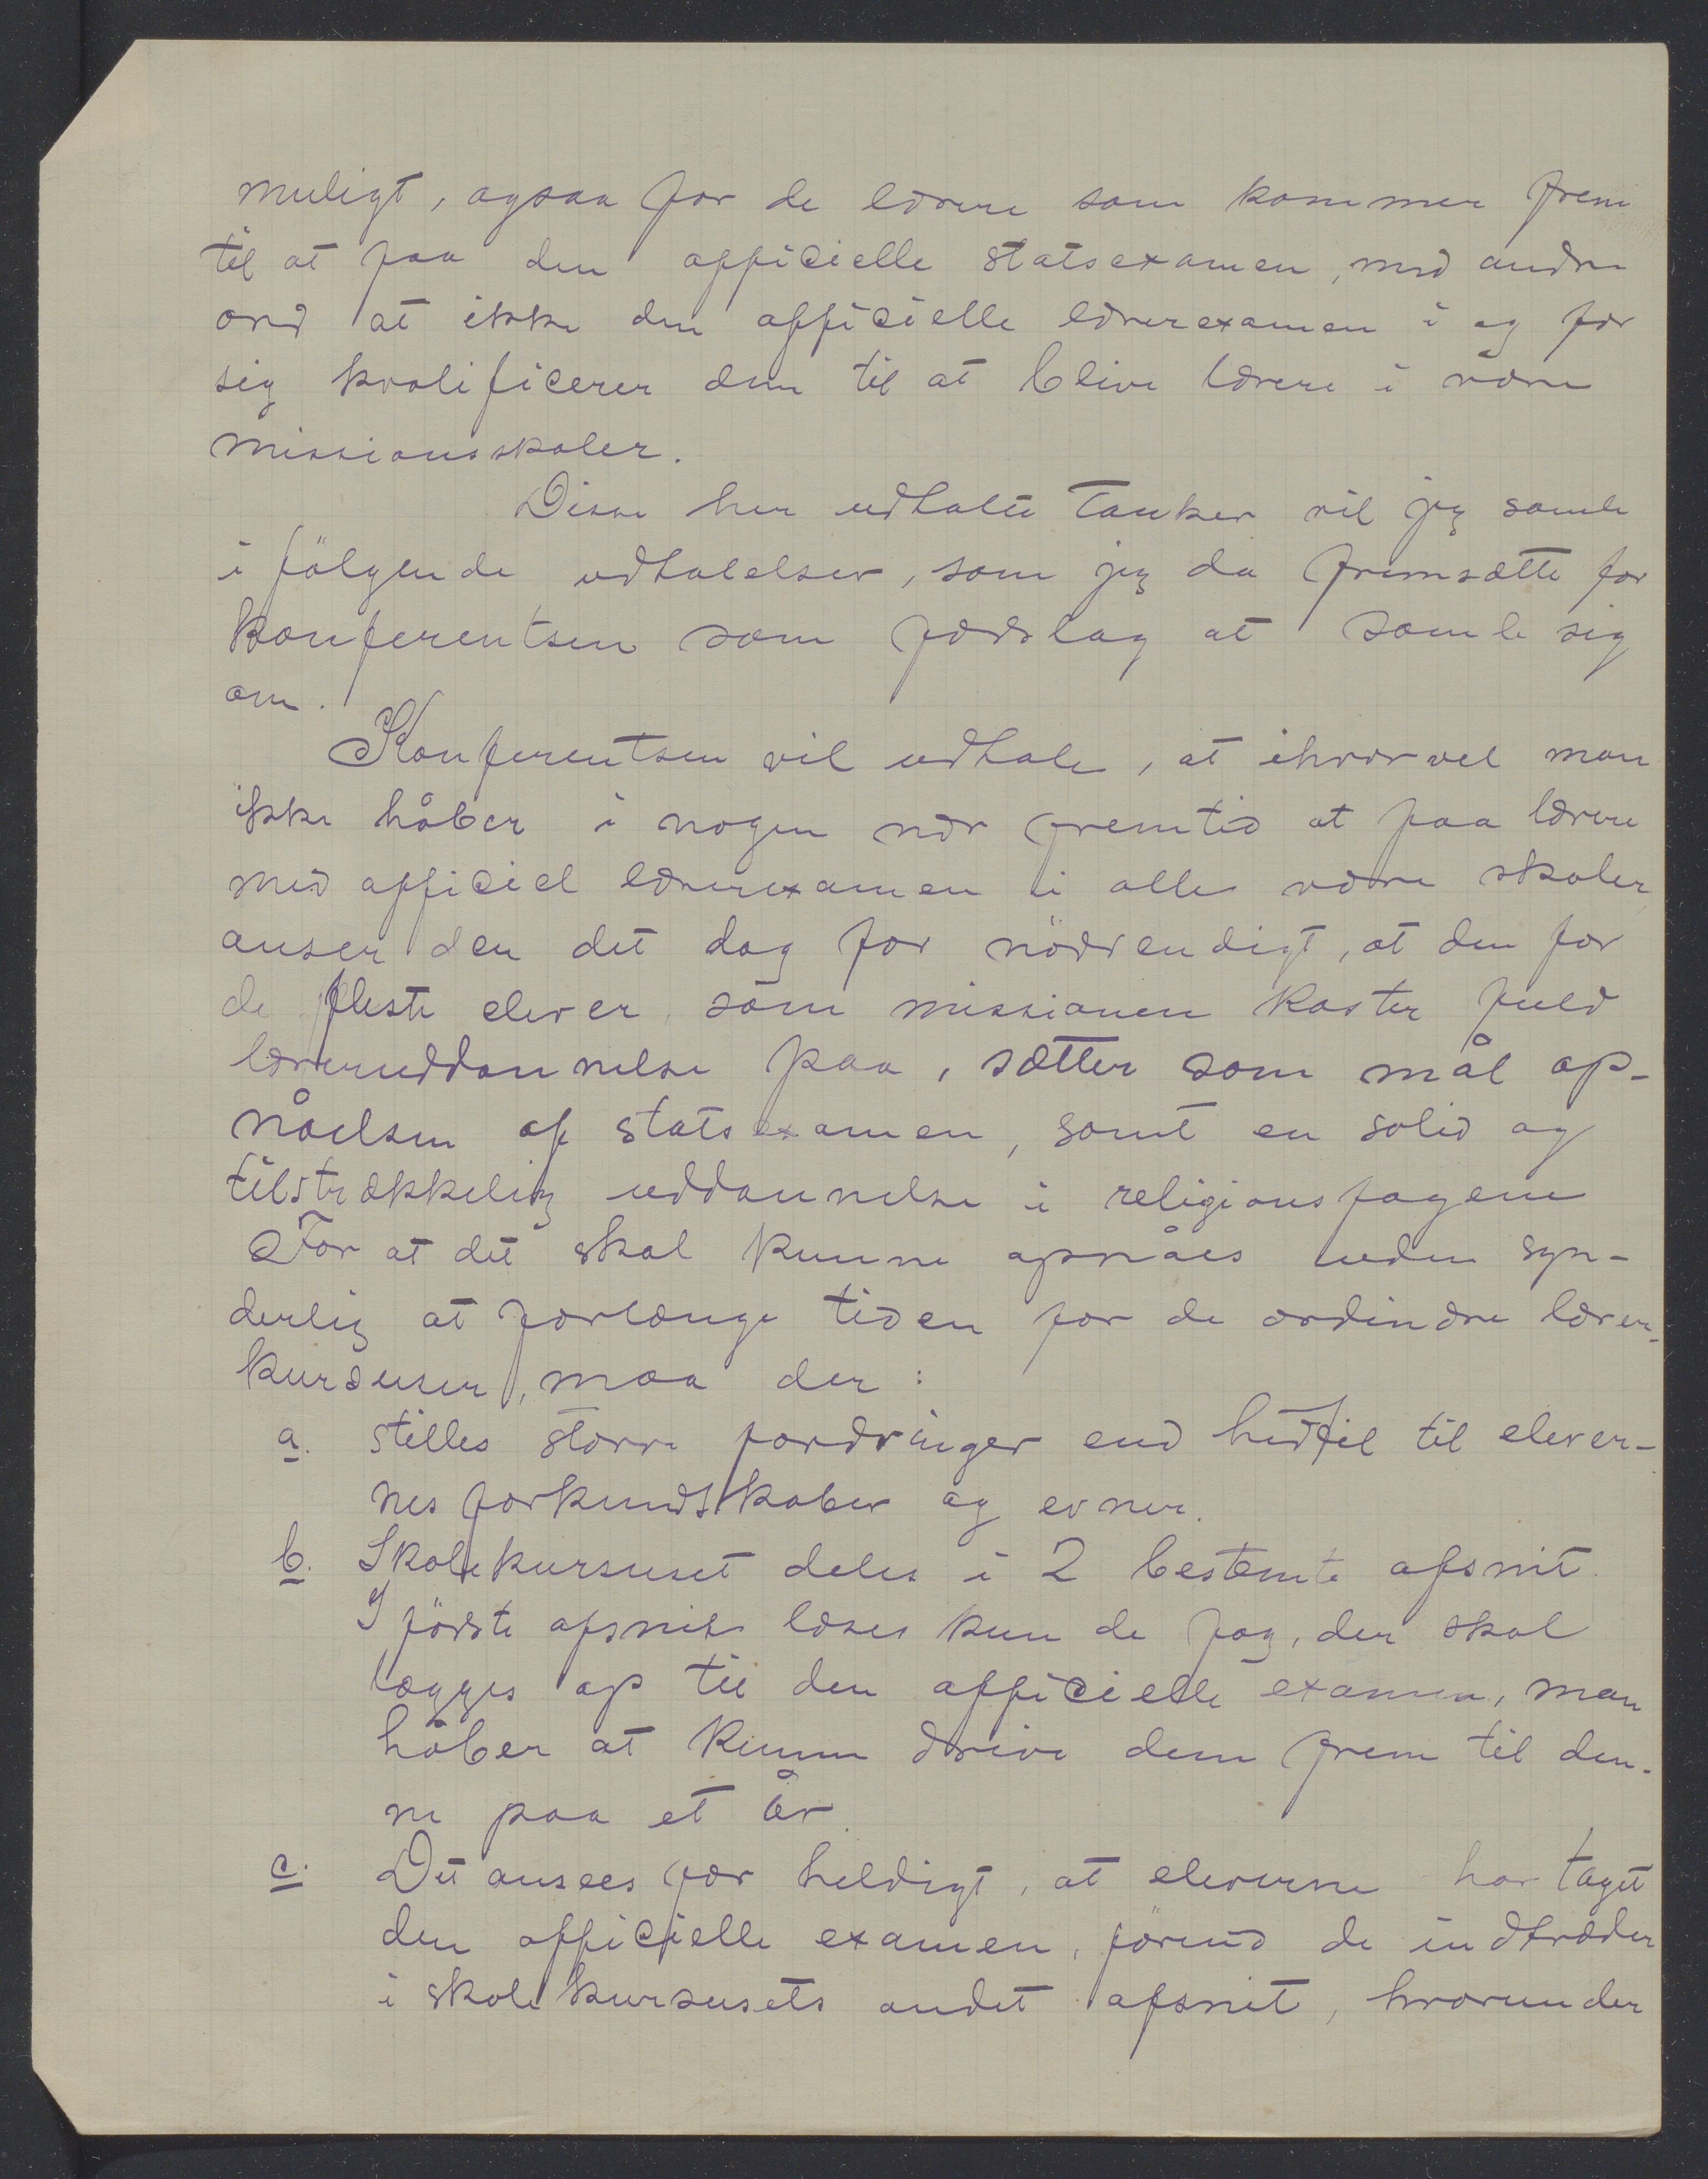 muligt, ogsaa for de lærere som kommer frem
til at faa den officielle statsexamen, med andre
ord at ikke den officielle lærerexamen i og for
sig kvalificerer dem til at blive lærere i vore
missionsskoler.
Disse her udtalte tanker vil jeg samle
i fölgende udtalelser, som jeg da fremsætte for
konferentsen som forslag at samle sig
om.
Konferentsen vil udtale, at ihvorvel man
ikke håber i nogen nær fremtid at faa lærere
med officiel lærerexamen i alle vore skoler,
anser den det dog for nödvendigt, at den for
de fleste elever, som missionen koster fuld
læreruddannelse paa, sætter som mål op-
nåelsen af statsexamen, samt en solid og
tilstrækkelig uddannelse i religionsfagene
For at det skal kunne opnåes uden syn-
derlig at forlænge tiden for de ordinære lærer-
kursuser, maa der:
a. stilles större fordringer end hidtil til elever-
nes forkundskaber og evner.
b. Skolekursuset deles i 2 bestemte afsnit.
I förste afsnit læses kun de fag, der skal
lægges op til den officielle examen, man
håber at kunne drive dem frem til den-
ne paa et år.
c. Det ansees for heldigt, at eleverne har taget
den officielle examen, förend de indtræder
i skolekursusets andet afsnit, hvorunder